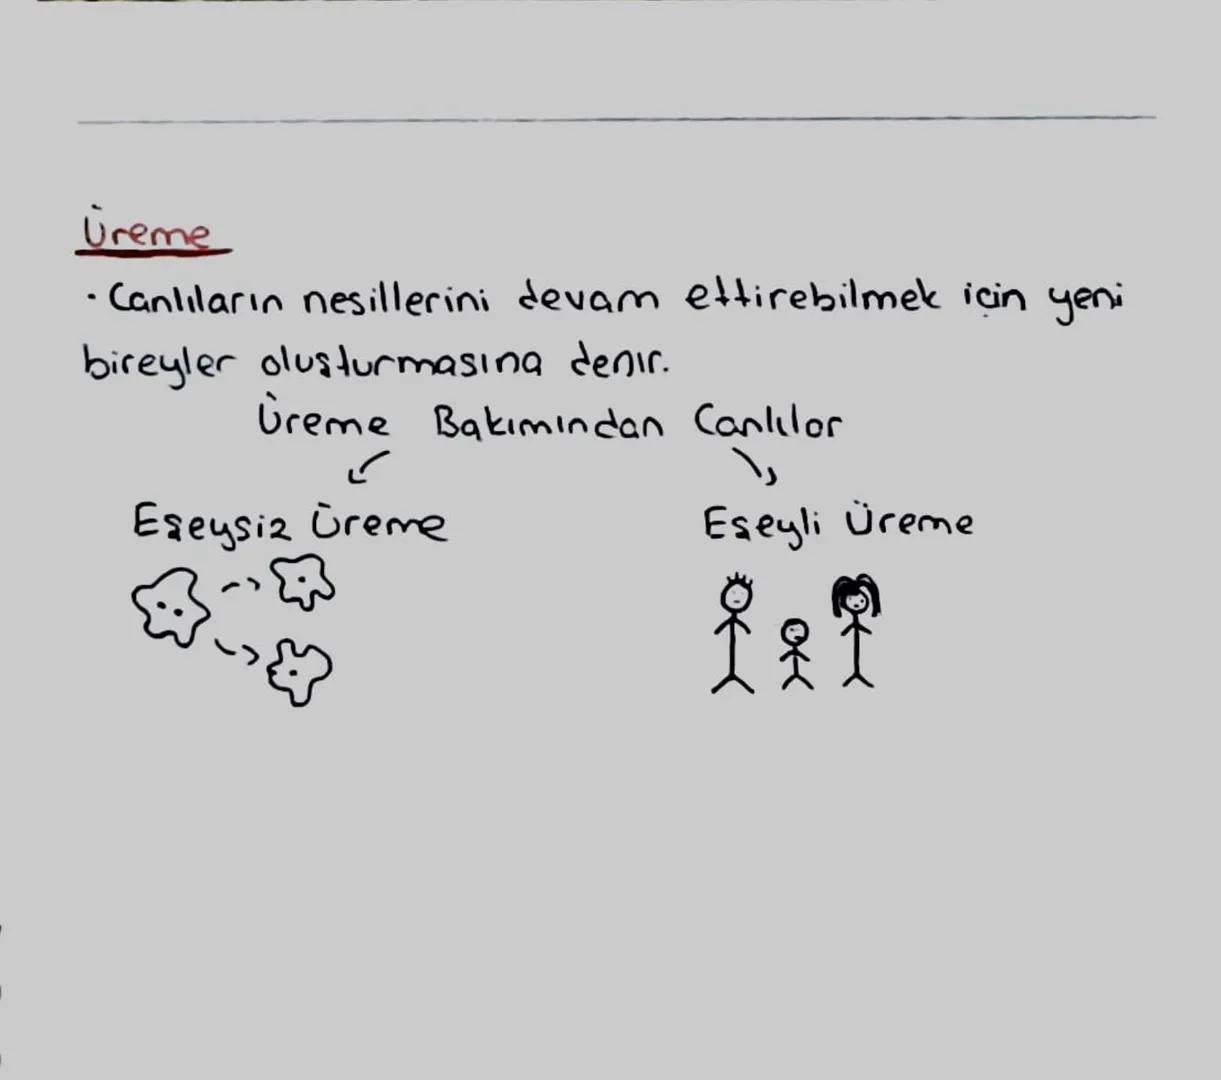 Üreme
· Canlıların nesillerini devam ettirebilmek için yeni
bireyler oluşturmasına denir.
Üreme Bakımından Canlılar
Eşeysiz Üreme Eşeyli Üreme